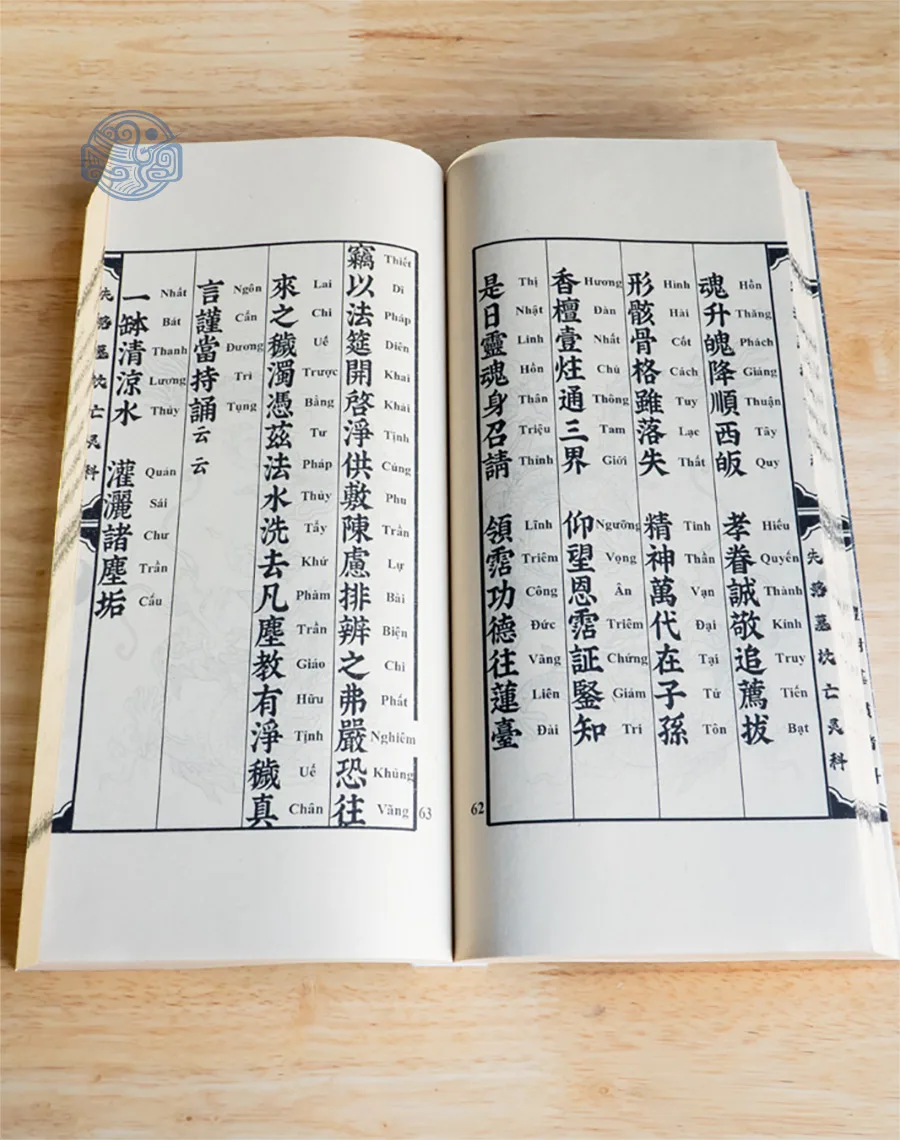 魂升魄降順西皈 孝眷誠敬追薦拔
Hồn Thăng Phách Giáng Thuận Tây Quy Hiếu Quyến Thành Kính Truy Tiến Bạt
形骸骨格雖落失 精神萬代在子孫
Hình Hài Cốt Cách Tuy Lạc Thất Tinh Thần Vạn Đại Tại Tử Tôn
香檀壹炷通三界 仰望恩霑証鋻知
Hương Đàn Nhất Chú Thông Tam Giới Ngưỡng Vọng Ân Triêm Chứng Giám Tri
是日靈魂身召請 領霑功德往蓮臺
Thị Nhật Linh Hồn Thân Triệu Thỉnh Lĩnh Triêm Công Đức Vãng Liên Đài
62
竊以法筵開啓淨供敷陳慮排辨之弗嚴恐往
Thiết Dĩ Pháp Diên Khai Khải Tịnh Cúng Phu Trần Lự Bài Biện Chi Phất Nghiêm Khủng Vãng
來之穢濁憑茲法水洗去凡塵教有淨穢真
Lai Chi Uế Trược Bằng Tư Pháp Thủy Tẩy Khứ Phàm Trần Giáo Hữu Tịnh Uế Chân
言謹當持誦云云
Ngôn Cẩn Đương Trì Tụng
一缽清涼水 灌灑諸塵垢
Nhất Bát Thanh Lương Thủy Quán Sái Chư Trần Cấu
63